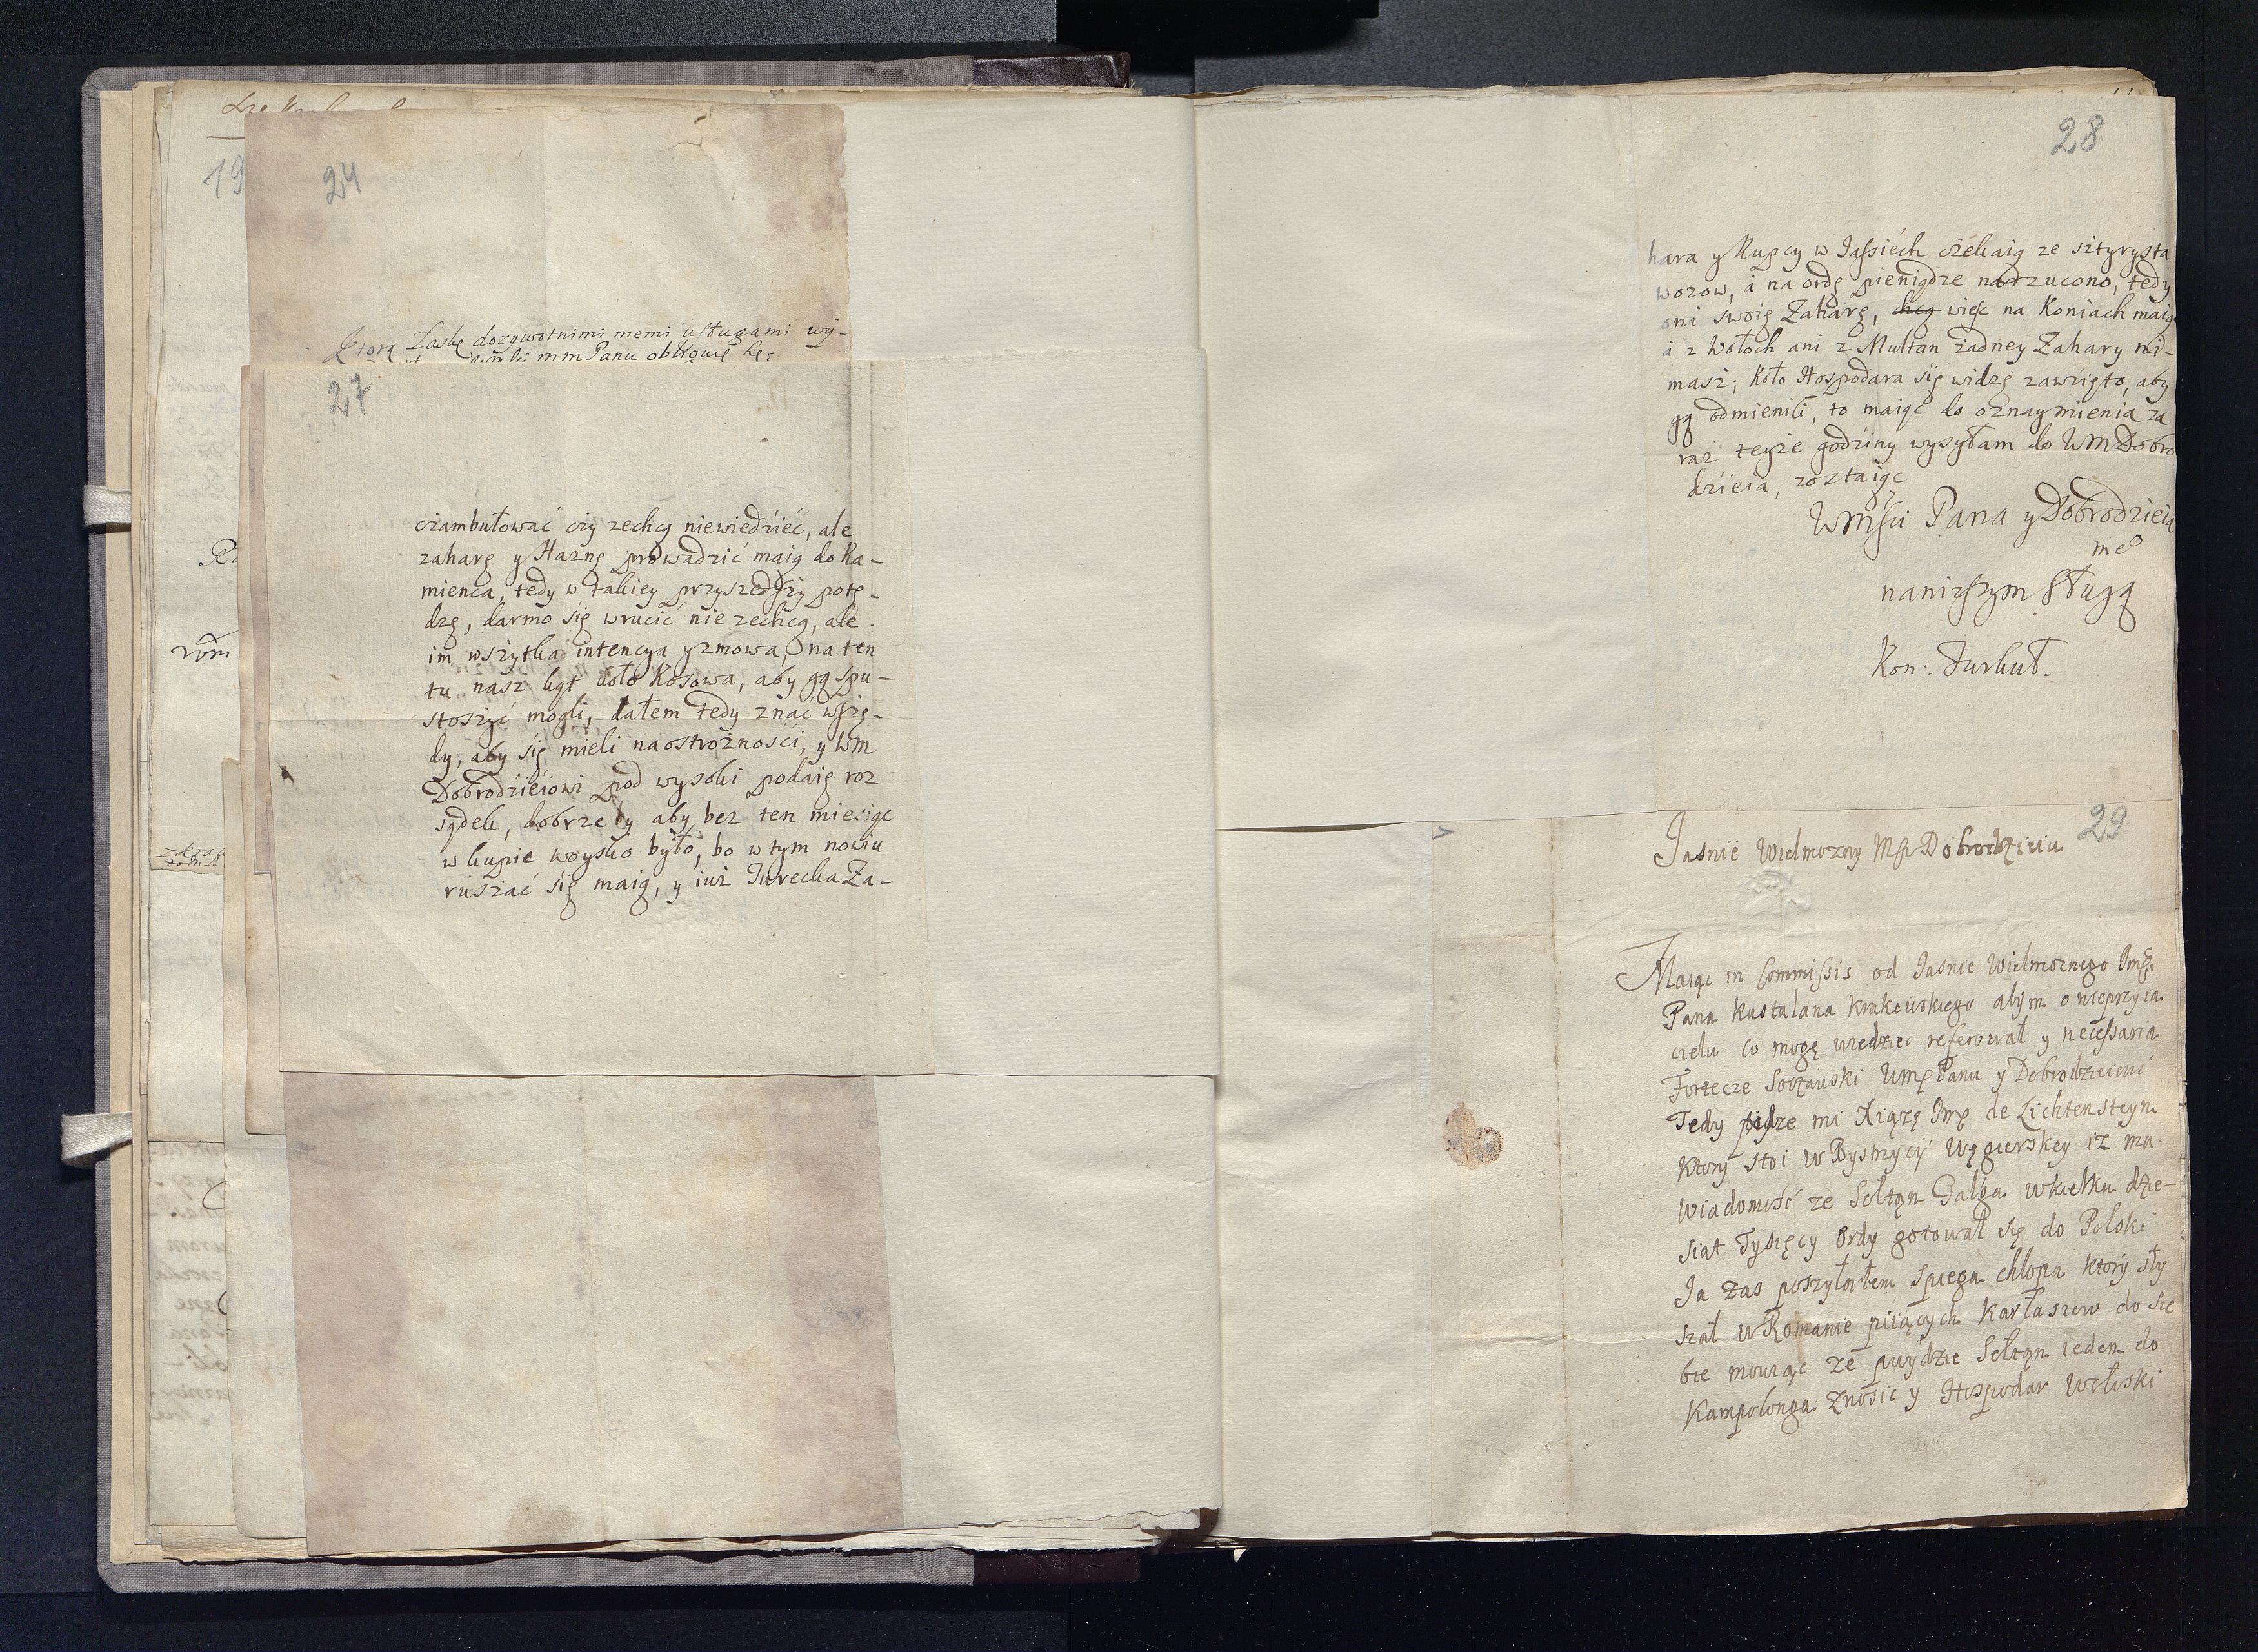 19
24
Ktorą Łaskę dozywotnimi memi usługami wy-
mm Panu obliguię się
27
cżambułować cży zechcą niewiedźieć, ale
zaharę y Haznę prowadzić maią do Ka-
mienca, tedy w takiey przyszedszy potę-
dzę, darmo się wrucić nie zechcą, ale
im wszytka intencya y zmowa, na ten
tu nasz kąt koło Kosowa, aby gą spu-
stoszyć mogli, dałem tedy znać wszę-
dy, aby się mieli na ostrożności, y WM
Dobrodźieiowi pod wysoki podaię roz
sądek, dobrze by aby bez ten miesiąc
w kupie woysko było, bo w tym nowiu
ruszać się maią, y iuż Turecka Za-
28
hara y Kupcy w Jassiech cżekaią ze sztyrysta
wozow, á na ordę pieniądze nadrzucono, tedy
oni swoię Zaharę, chcą więc na Koniach maią
á z Wołoch ani z Multan żadney Zahary ni-
masz; Koło Hospodara się widzę zawzięto, aby
gą odmienili, to maiąc do oznaymienia za
raz teyże godźiny wysyłam do WM Dobro
dźieia, zostaiąc
WMści Pana y Dobrodzieia
meo
naniższym Sługą
Kon: Turkuł.
29
Jasnie Wielmozny Mśp Dobrodzieiu
Maiąc in Commissis od Jasnie Wielmoznego Jmści
Pana Kasztalana Krakowskiego abym o nieprzyia
cielu co mogę wiedziec referował y necessaria
Fortecze Soczawski Wmę Panu y Dobrodzieiowi
Tedy pisze mi Xiążę Jmę de Lichtensteyn
Ktory stoi w Bystrzycy Węgierskey iz ma
Wiadomość ze Sołtąn Gałga w kielku dzie-
siąt Tysięcy Ordy gotował się do Polski
Ja zas poszyłałem spiega chłopa ktory sły
szał w Romanie piiących Karłaszow do sie
bie mowiąc ze puydzie Sołtąn ieden do
Kampolonga Znosić y Hospodar Wołoski